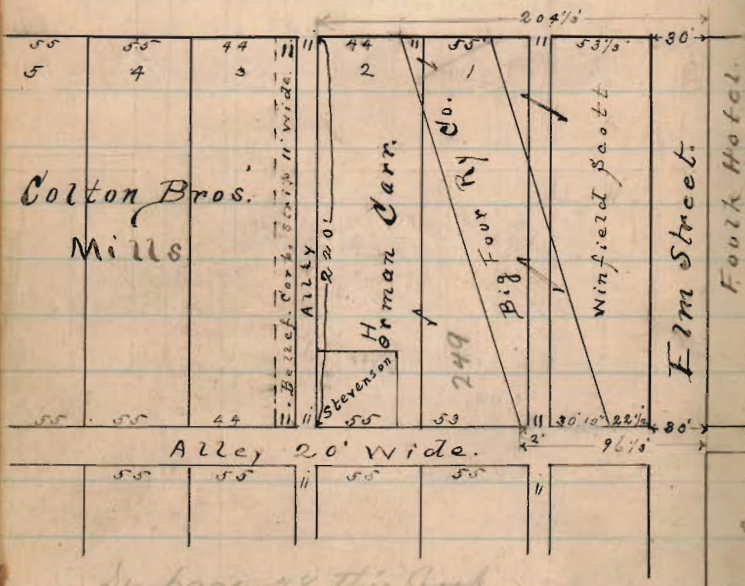 204 1/2'
55 55 44 11 11 44 11 55' 11 53 1/2' 30'
5 4 3 2 1
Colton Bros.'
Mills
Bellef. Corb. Strip 11' Wide.
Alley
220'
Horman Carr.
Stevenson
249
Big Four Ry Co.
Winfield Scott
Elm Street.
Fourth Hotel.
55 55 44 11 11 55 53 11 30' 10" 22 1/2 30'
2' 96 1/2'
Alley 20' Wide.
55 55 11 55 55 11
See page 28 this book